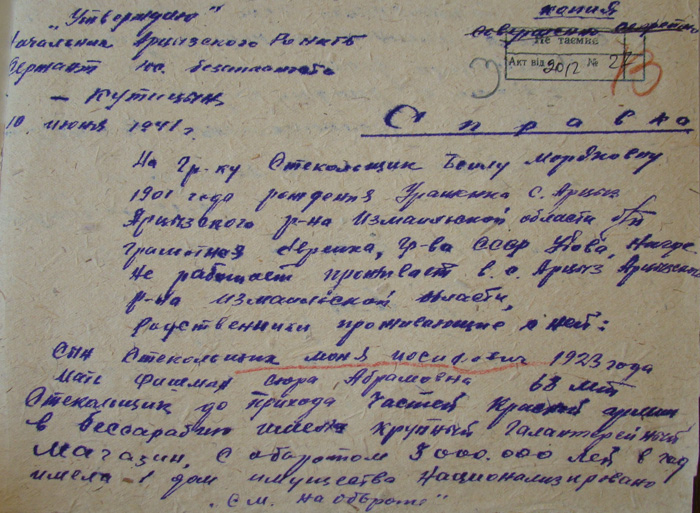 "Утверждаю"
копия
Начальник Арцизского РО НКГБ
совершенно секретно
Сержант гос. безопасности
Не таємно
Акт від 20/2 № 27
73
– Кутицын
10 июня 1941 г.
Справка
На гр-ку Стекольщик Бейлу Мордковну
1901 года рождения уроженка с. Арциз
Арцизского р-на Измаильской области б/п
грамотная еврейка, гр-ва СССР вдова, нигде
не работает проживает в с. Арциз Арцизского
р-на Измаильской области,
родственники проживающие с ней:
сын Стекольщик Моня Иосифович 1923 года
мать Фишман Сюра Абрамовна 68 лет
Стекольщик до прихода частей Красной армии
в Бессарабию имела крупный галантерейный
магазин, с оборотом 3000.000 лей в год
имела 1 дом имущество национализировано
"См. на обороте"